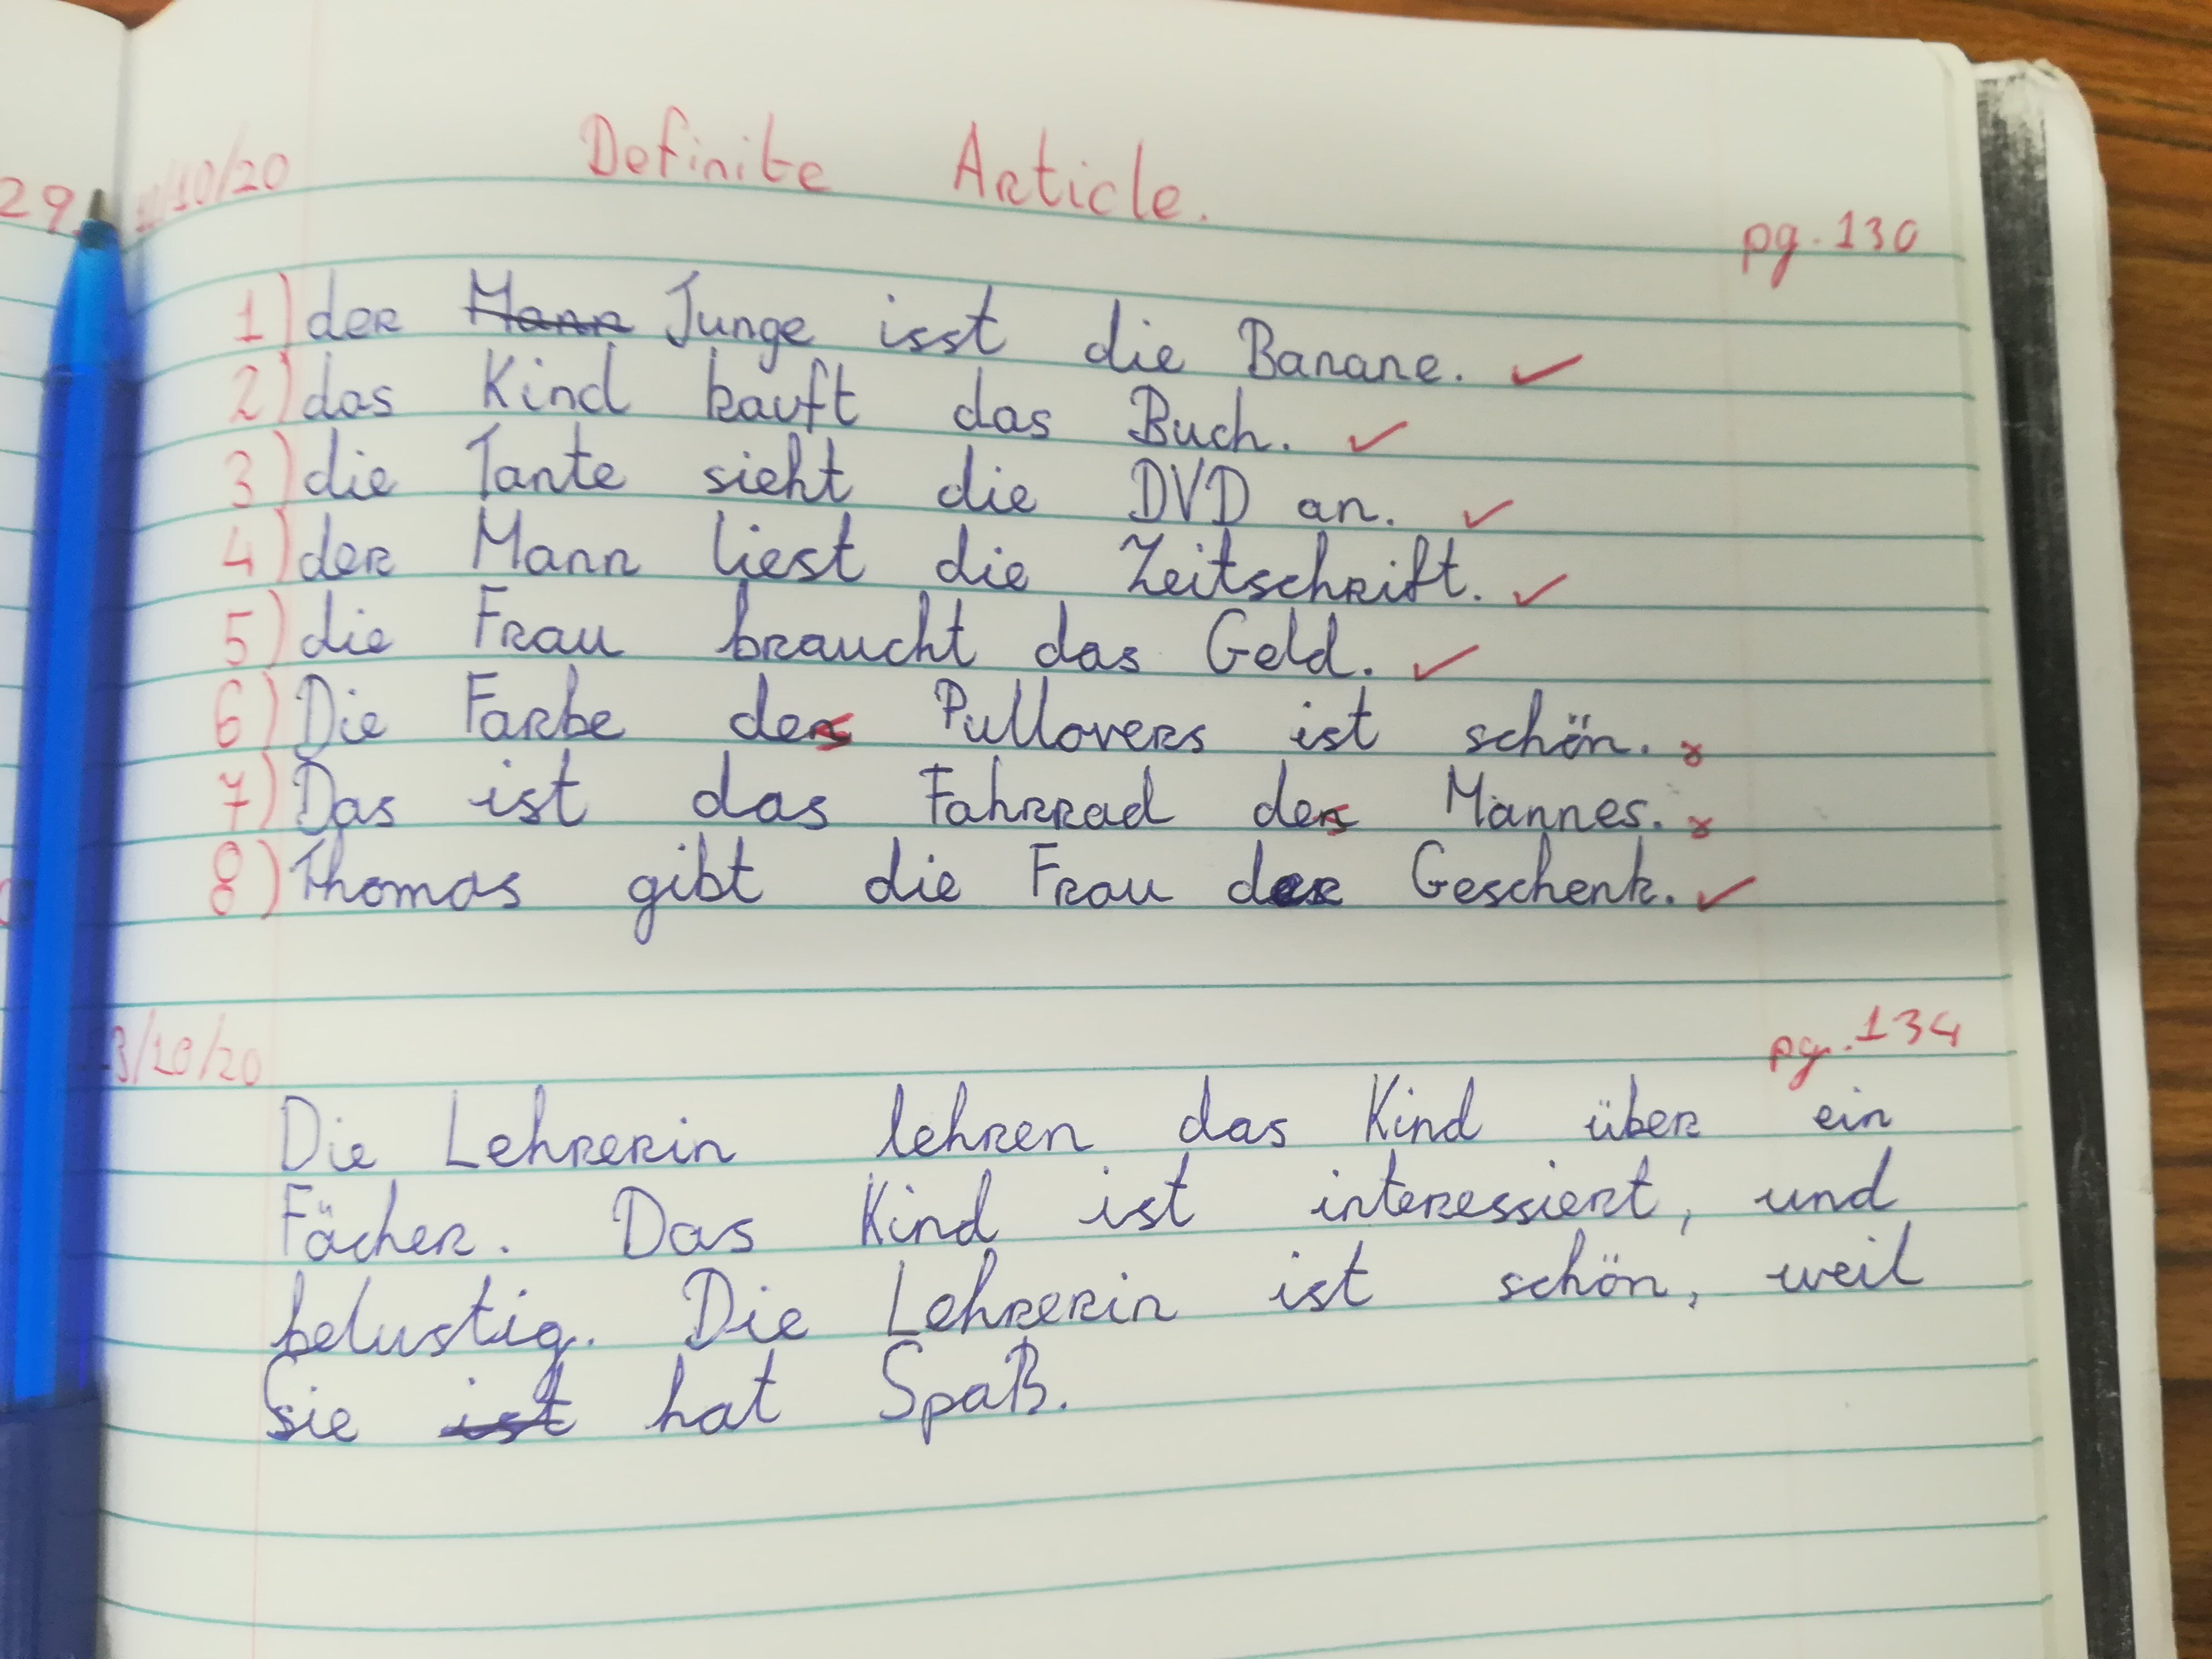 Definite Article.
29. /10/20
pg. 130
1) der Mann Junge isst die Banane.
2) das Kind kauft das Buch.
3) die Tante sieht die DVD an.
4) der Mann liest die Zeitschrift.
5) die Frau braucht das Geld.
6) Die Farbe des Pullovers ist schön. x
7) Das ist das Fahrrad des Mannes. x
8) Thomas gibt die Frau der Geschenk.
/10/20 pg. 134
Die Lehrerin lehren das Kind über ein
Fächer. Das Kind ist interessiert, und
belustig. Die Lehrerin ist schön, weil
Sie ist hat Spaß.